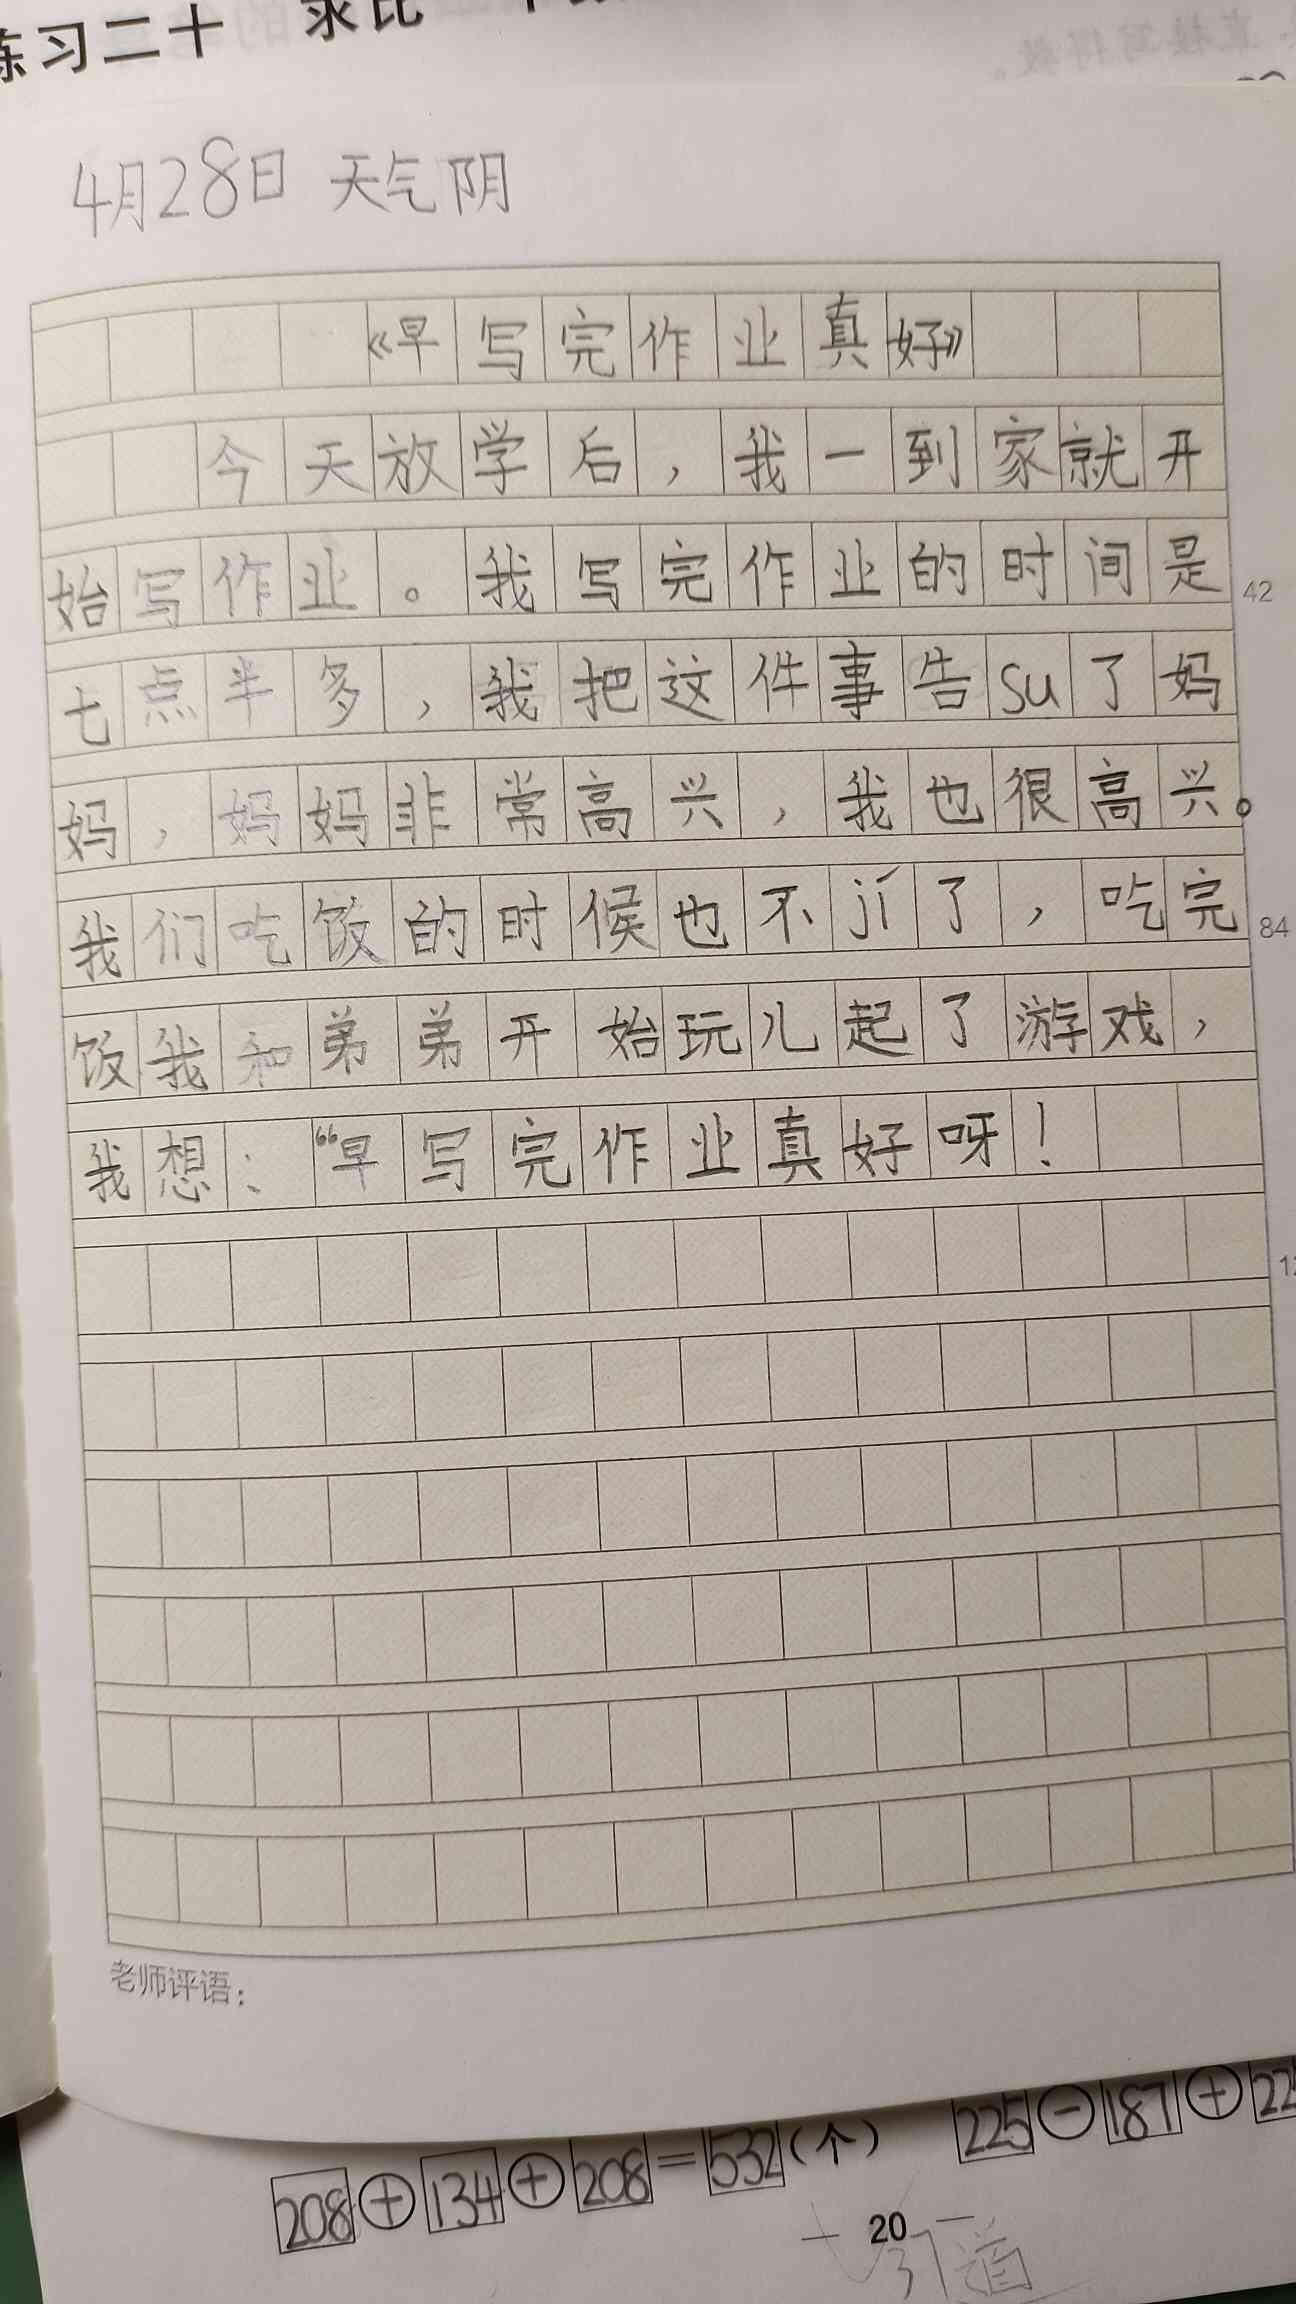 练习二十 求比
4月28日 天气阴
《早写完作业真好》
今天放学后，我一到家就开
始写作业。我写完作业的时间是
42
七点半多，我把这件事告su了妈
妈，妈妈非常高兴，我也很高兴。
我们吃饭的时候也不jí了，吃完
84
饭我和弟弟开始玩儿起了游戏，
我想：“早写完作业真好呀！
老师评语：
208+134+208=532(个) 225-187+22
20
引道